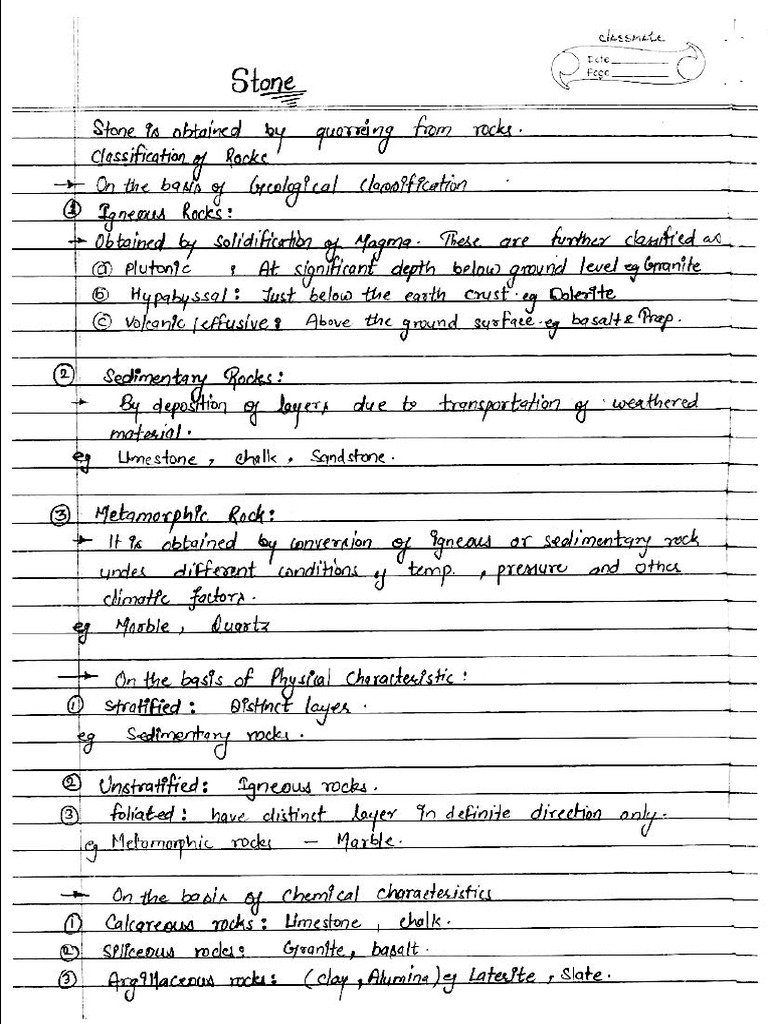 classmate
Date
Page
Stone
Stone is obtained by quarreing from rocks.
Classification of Rocks
→ On the basis of Geological Classification
① Igneous Rocks:
→ Obtained by Solidification of Magma. These are further classified as
ⓐ Plutonic : At significant depth below ground level eg Granite
ⓑ Hypabyssal: Just below the earth crust. eg Dolerite
ⓒ Volcanic/effusive: Above the ground surface. eg basalt &
② Sedimentary Rocks:
→ By deposition of layers due to transportation of weathered
material.
eg Limestone, chalk, Sandstone.
③ Metamorphic Rock:
→ It is obtained by conversion of igneous or sedimentary rock
under different conditions of temp., pressure and other
climatic factors.
eg Marble, Quartz
→ On the basis of Physical Characteristic:
① Stratified: Distinct layer.
eg Sedimentary rocks.
② Unstratified: Igneous rocks.
③ foliated: have distinct layer in definite direction only.
eg Metamorphic rocks – Marble.
→ On the basis of Chemical Characteristics
① Calcareous rocks: Limestone, chalk.
② rocks: Granite, basalt.
③ Argillaceous rocks: (clay, Alumina) eg Laterite, Slate.